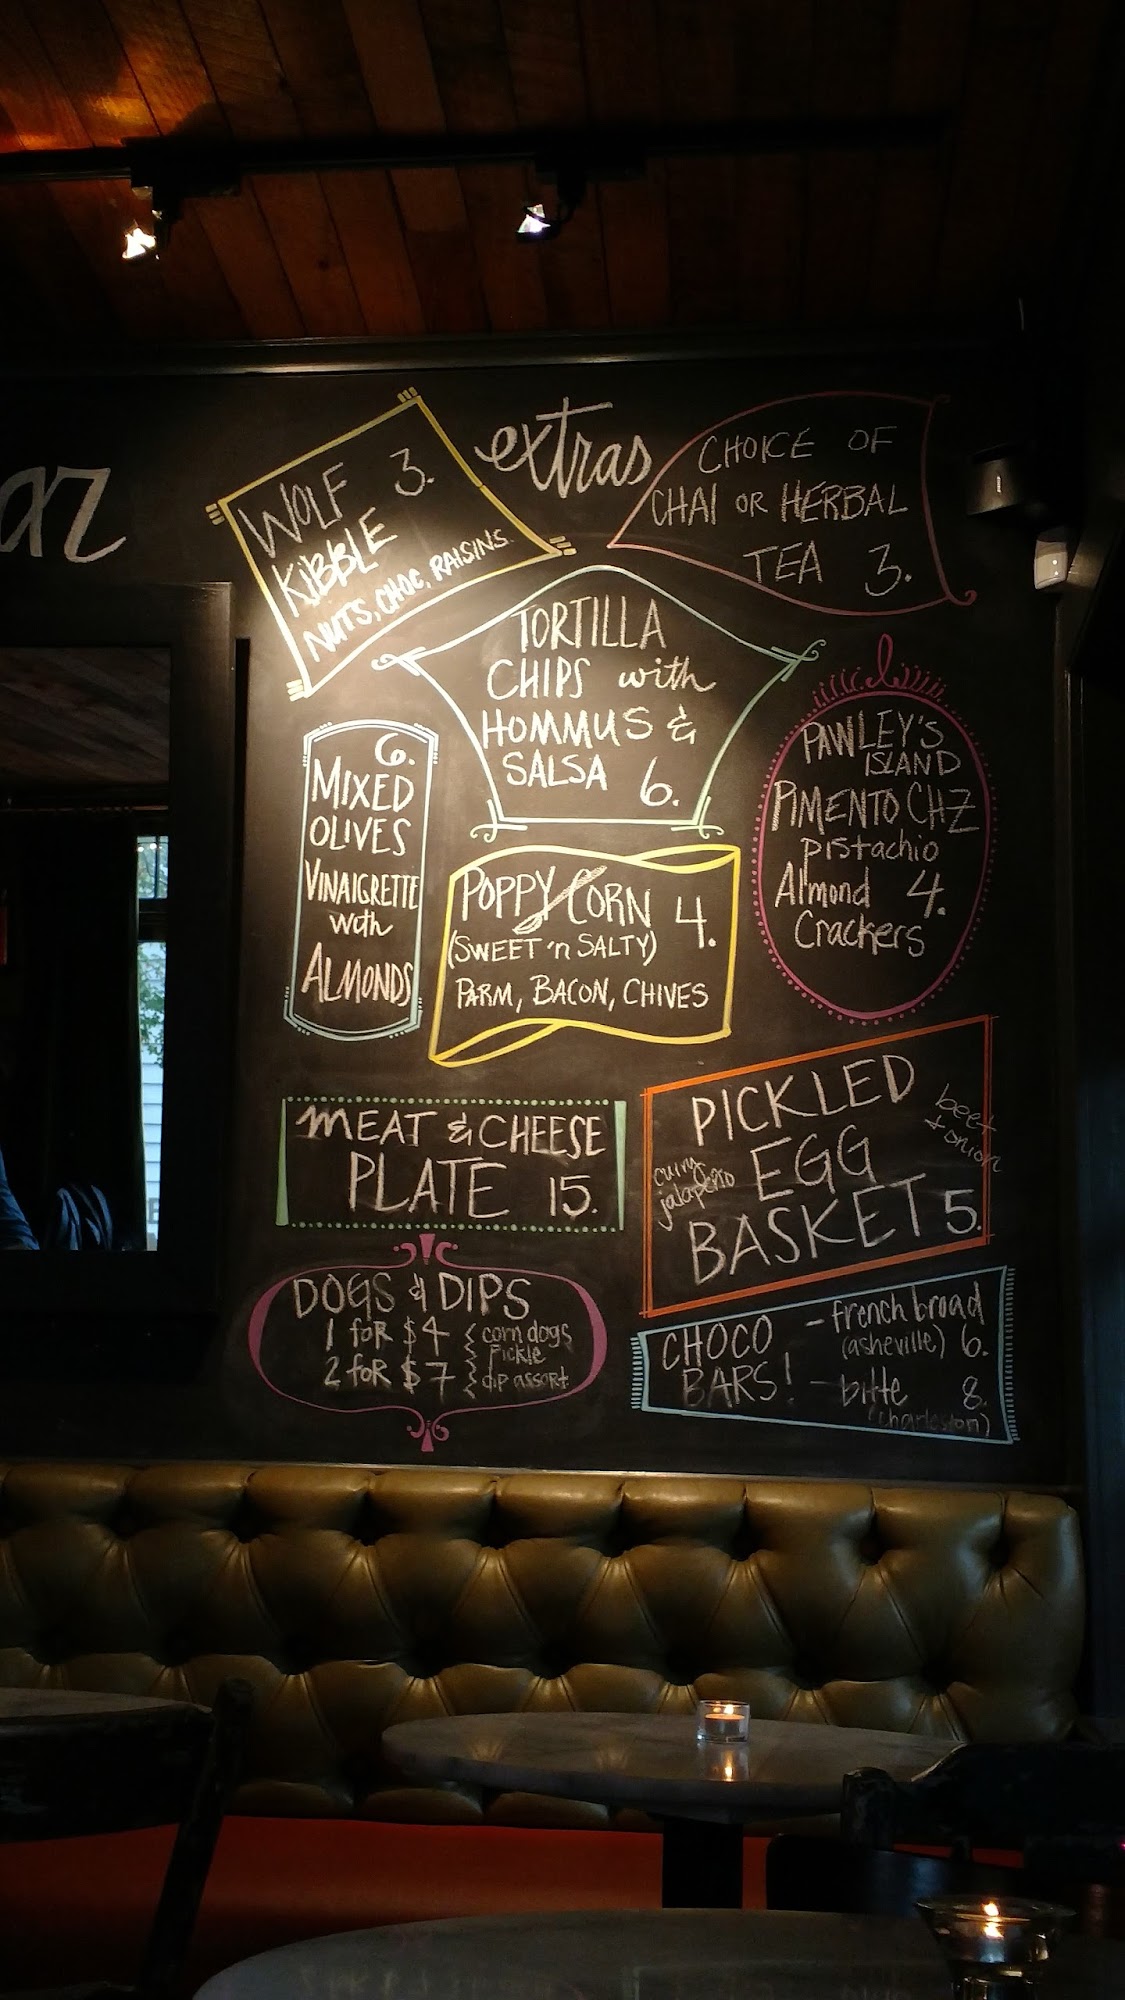 extras
WOLF 3.
KIBBLE
NUTS, CHOC, RAISINS
CHOICE OF
CHAI OR HERBAL
TEA 3.
TORTILLA
CHIPS with
HOMMUS &
SALSA 6.
6.
MIXED
OLIVES
VINAIGRETTE
with
ALMONDS
PAWLEY'S
ISLAND
PIMENTO CHZ
pistachio
Almond 4.
Crackers
POPPY CORN 4.
(SWEET 'n SALTY)
PARM, BACON, CHIVES
MEAT & CHEESE
PLATE 15.
PICKLED
EGG
BASKET 5.
beet
+ onion
curry
jalapeño
DOGS & DIPS
1 for $4 { corn dogs
pickle
2 for $7 { dip assort.
CHOCO
BARS!
- french broad
(asheville) 6.
- bitte 8.
(charleston)